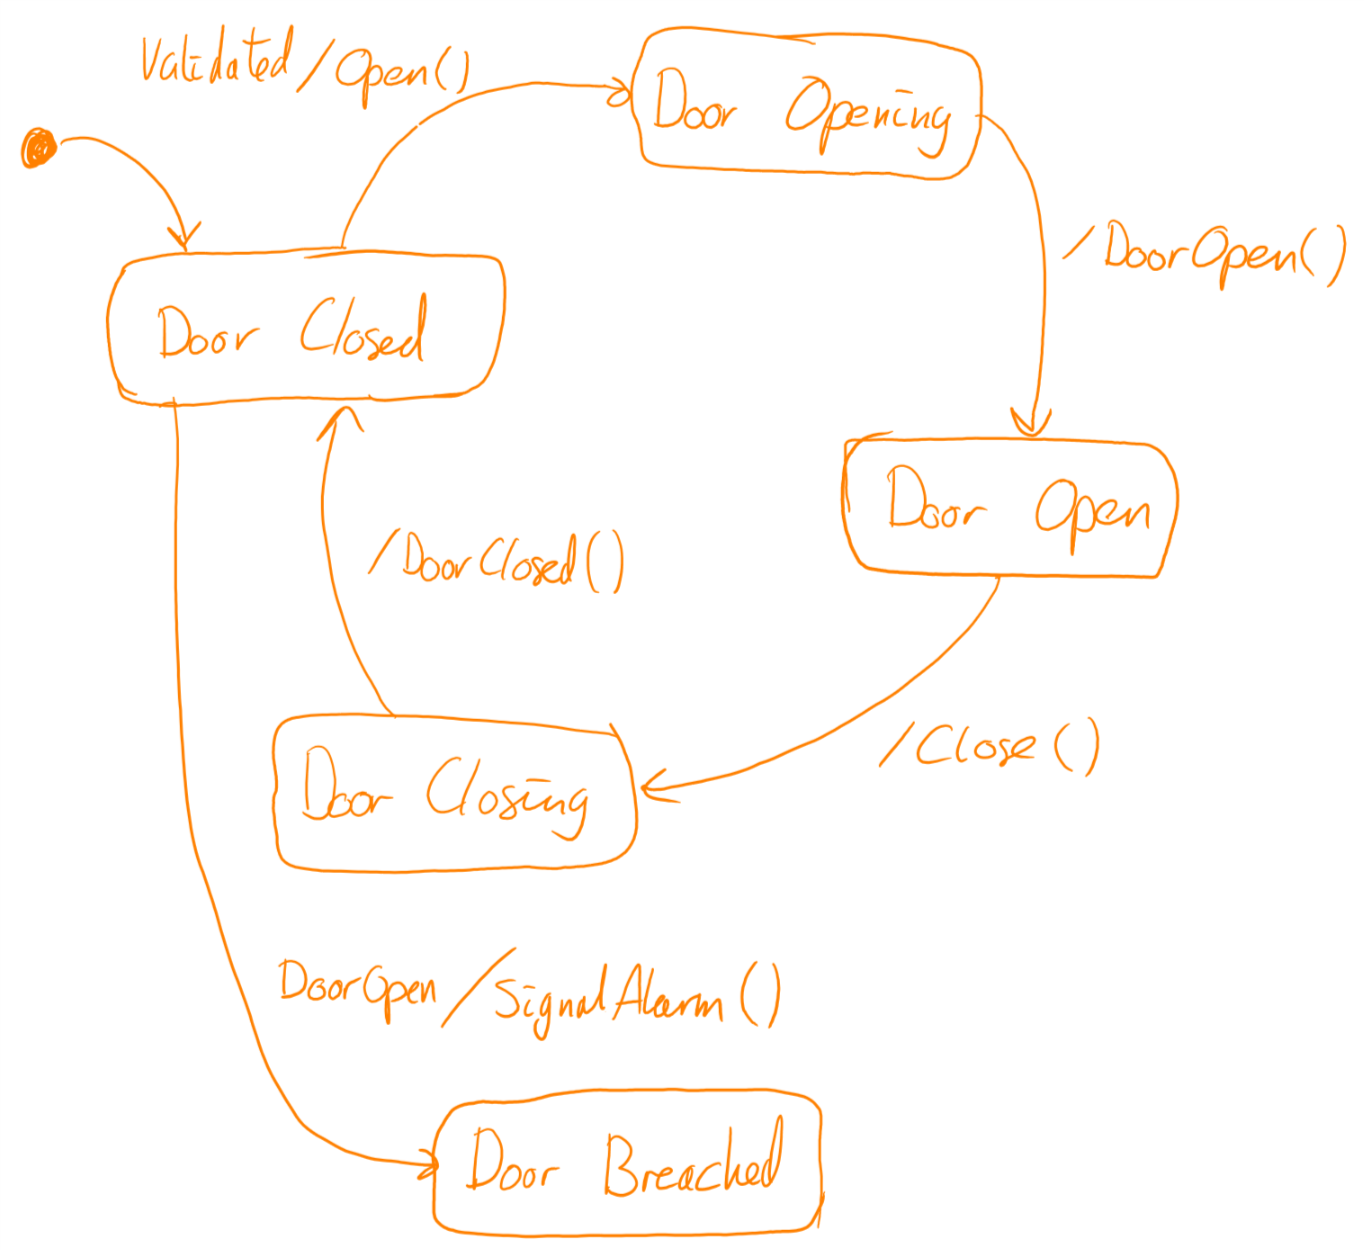 Validated/Open()
Door Opening
/DoorOpen()
Door Closed
Door Open
/DoorClosed()
/Close()
Door Closing
DoorOpen/SignalAlarm()
Door Breached